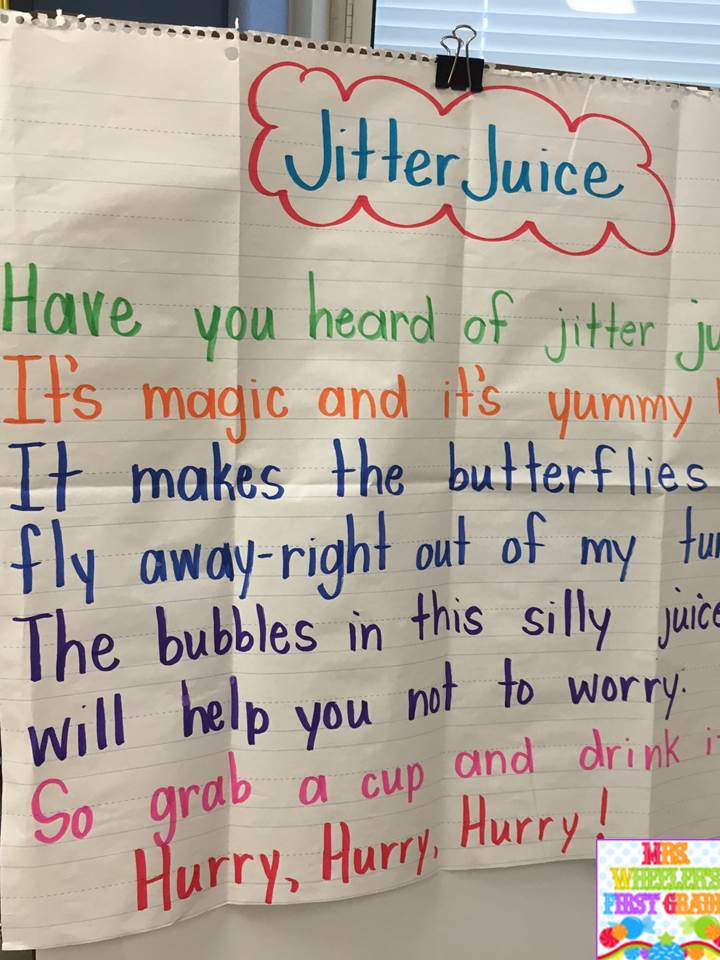 Jitter Juice
Have you heard of jitter
It's magic and it's yummy
It makes the butterflies
fly away-right out of my
The bubbles in this silly juice
will help you not to worry.
So grab a cup and drink
Hurry, Hurry, Hurry!
MRS.
WHEELER'S
FIRST GRADE